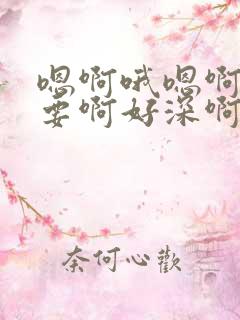 嗯啊哦嗯啊
要啊好深啊
奈何心歡